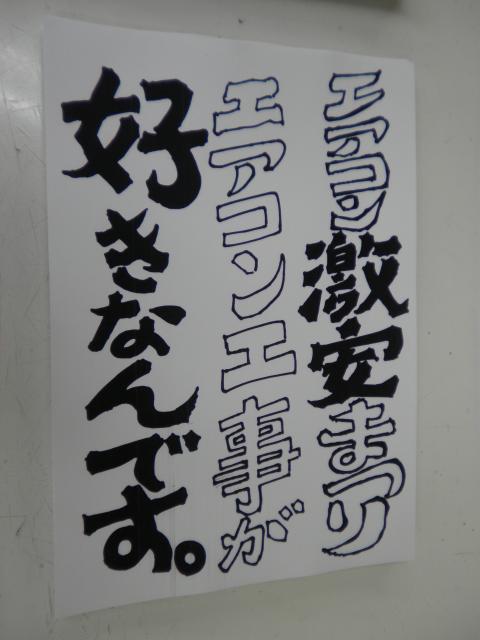 エアコン激安まつり
エアコン工事が
好きなんです。